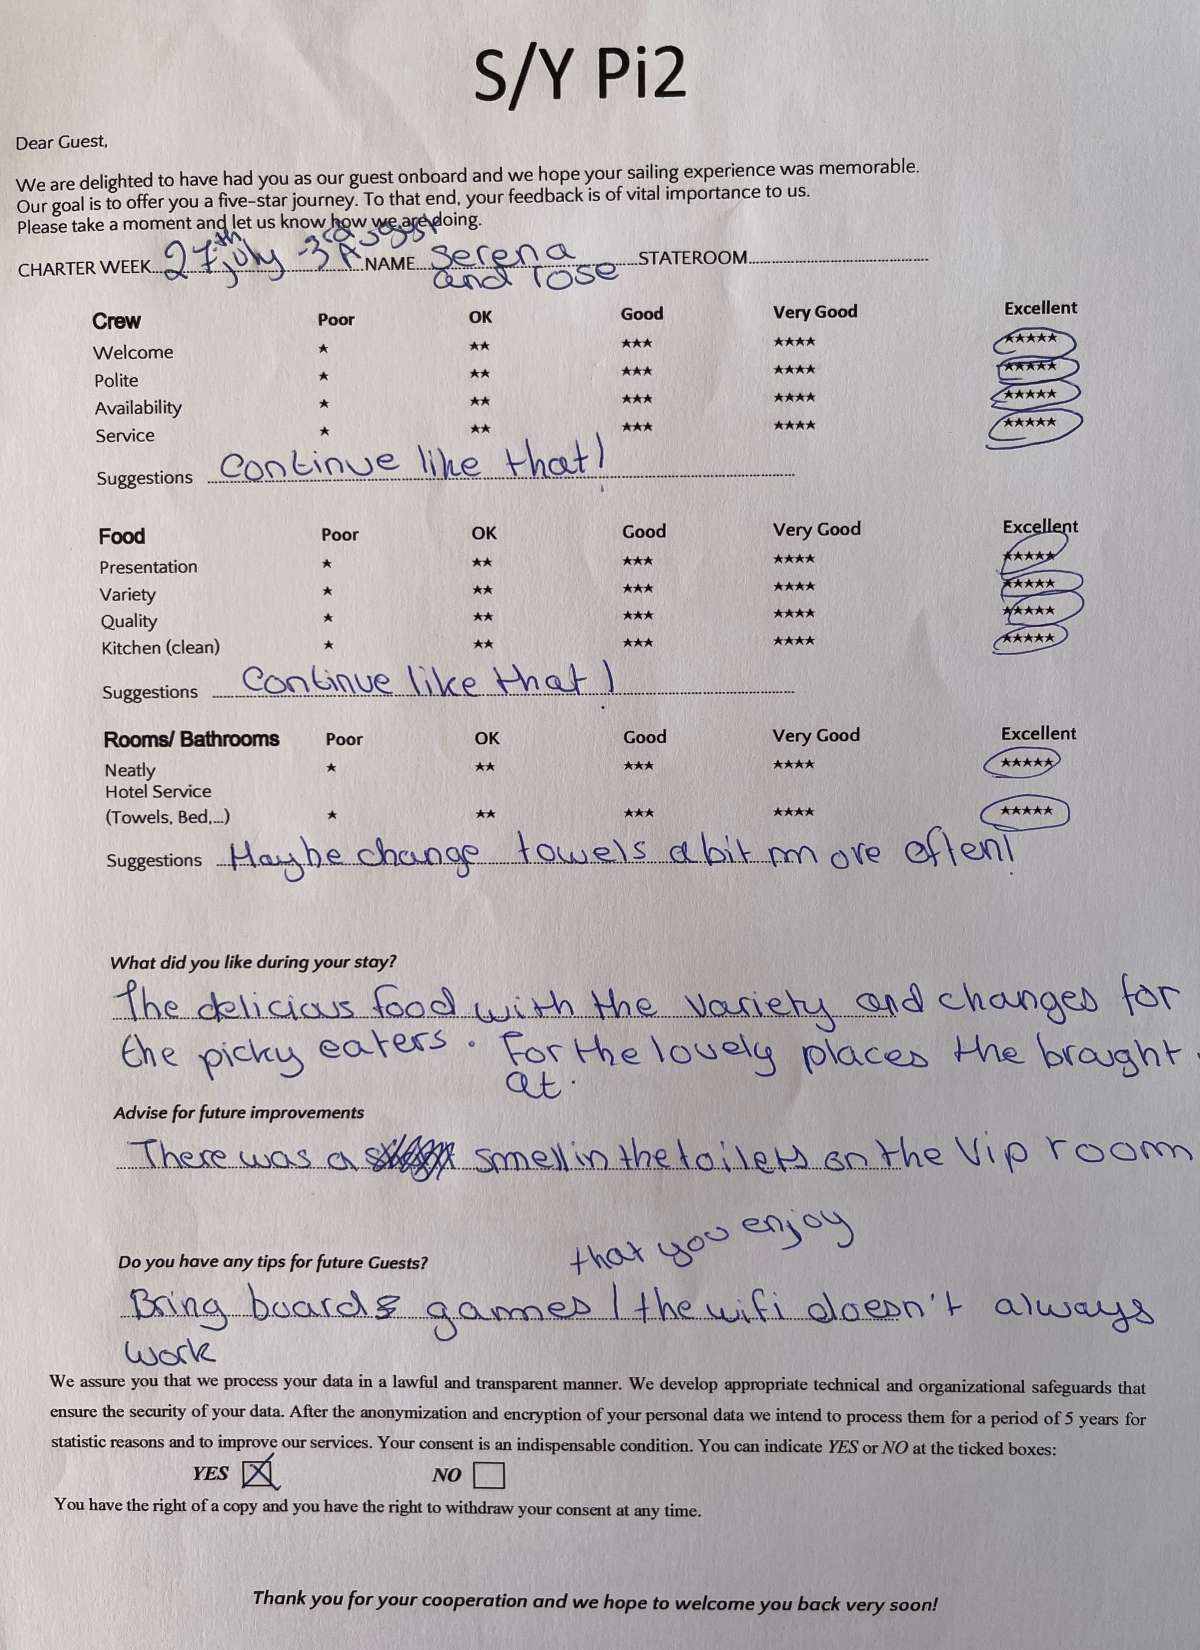 S/Y Pi2
Dear Guest,
We are delighted to have had you as our guest onboard and we hope your sailing experience was memorable.
Our goal is to offer you a five-star journey. To that end, your feedback is of vital importance to us.
Please take a moment and let us know how we are doing.
CHARTER WEEK 27th july - 3rd August NAME Serena and rose STATEROOM
Crew Poor OK Good Very Good Excellent
Welcome ★ ★★ ★★★ ★★★★ ★★★★★
Polite ★ ★★ ★★★ ★★★★ ★★★★★
Availability ★ ★★ ★★★ ★★★★ ★★★★★
Service ★ ★★ ★★★ ★★★★ ★★★★★
Suggestions Continue like that!
Food Poor OK Good Very Good Excellent
Presentation ★ ★★ ★★★ ★★★★ ★★★★★
Variety ★ ★★ ★★★ ★★★★ ★★★★★
Quality ★ ★★ ★★★ ★★★★ ★★★★★
Kitchen (clean) ★ ★★ ★★★ ★★★★ ★★★★★
Suggestions Continue like that!
Rooms/ Bathrooms Poor OK Good Very Good Excellent
Neatly ★ ★★ ★★★ ★★★★ ★★★★★
Hotel Service
(Towels, Bed,...) ★ ★★ ★★★ ★★★★ ★★★★★
Suggestions Maybe change towels a bit more often!
What did you like during your stay?
The delicious food with the variety and changes for
the picky eaters. For the lovely places the braught
at.
Advise for future improvements
There was a smell in the toilets on the Vip room
Do you have any tips for future Guests?
that you enjoy
Bring boards games / the wifi doesn't always
work
We assure you that we process your data in a lawful and transparent manner. We develop appropriate technical and organizational safeguards that
ensure the security of your data. After the anonymization and encryption of your personal data we intend to process them for a period of 5 years for
statistic reasons and to improve our services. Your consent is an indispensable condition. You can indicate YES or NO at the ticked boxes:
YES ☒ NO ☐
You have the right of a copy and you have the right to withdraw your consent at any time.
Thank you for your cooperation and we hope to welcome you back very soon!